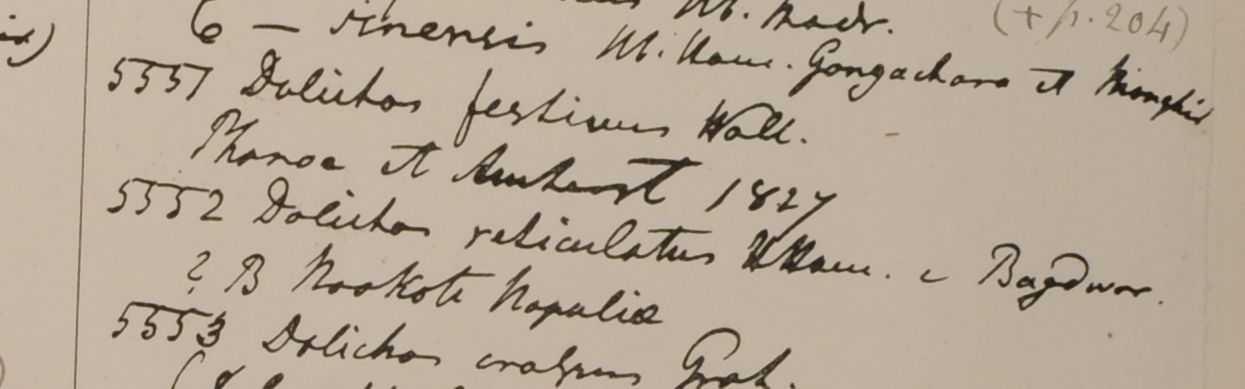 Hb. Madr. (+ p. 204)
6 — sinensis Hb. Ham. Gongachora et Monghir
5551 Dolichos festivus Wall.
Phanoe et Amherst 1827
5552 Dolichos reticulatus HHam. e Bagdwar.
? B Noakote Napaliæ
5553 Dolichos Grah.